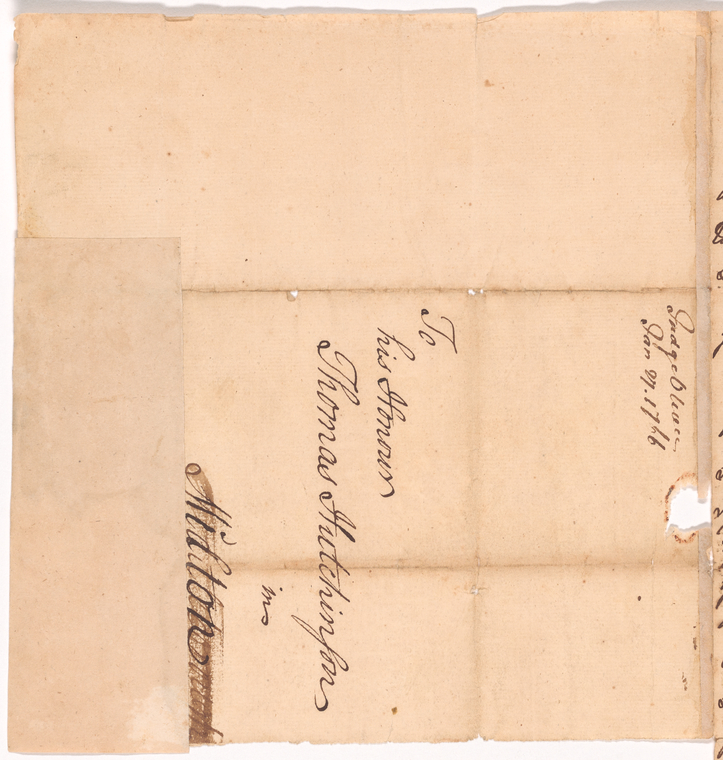 To
his Honour
Thomas Hutchinson
in
Milton
Judge Oliver
Jan 27. 1766